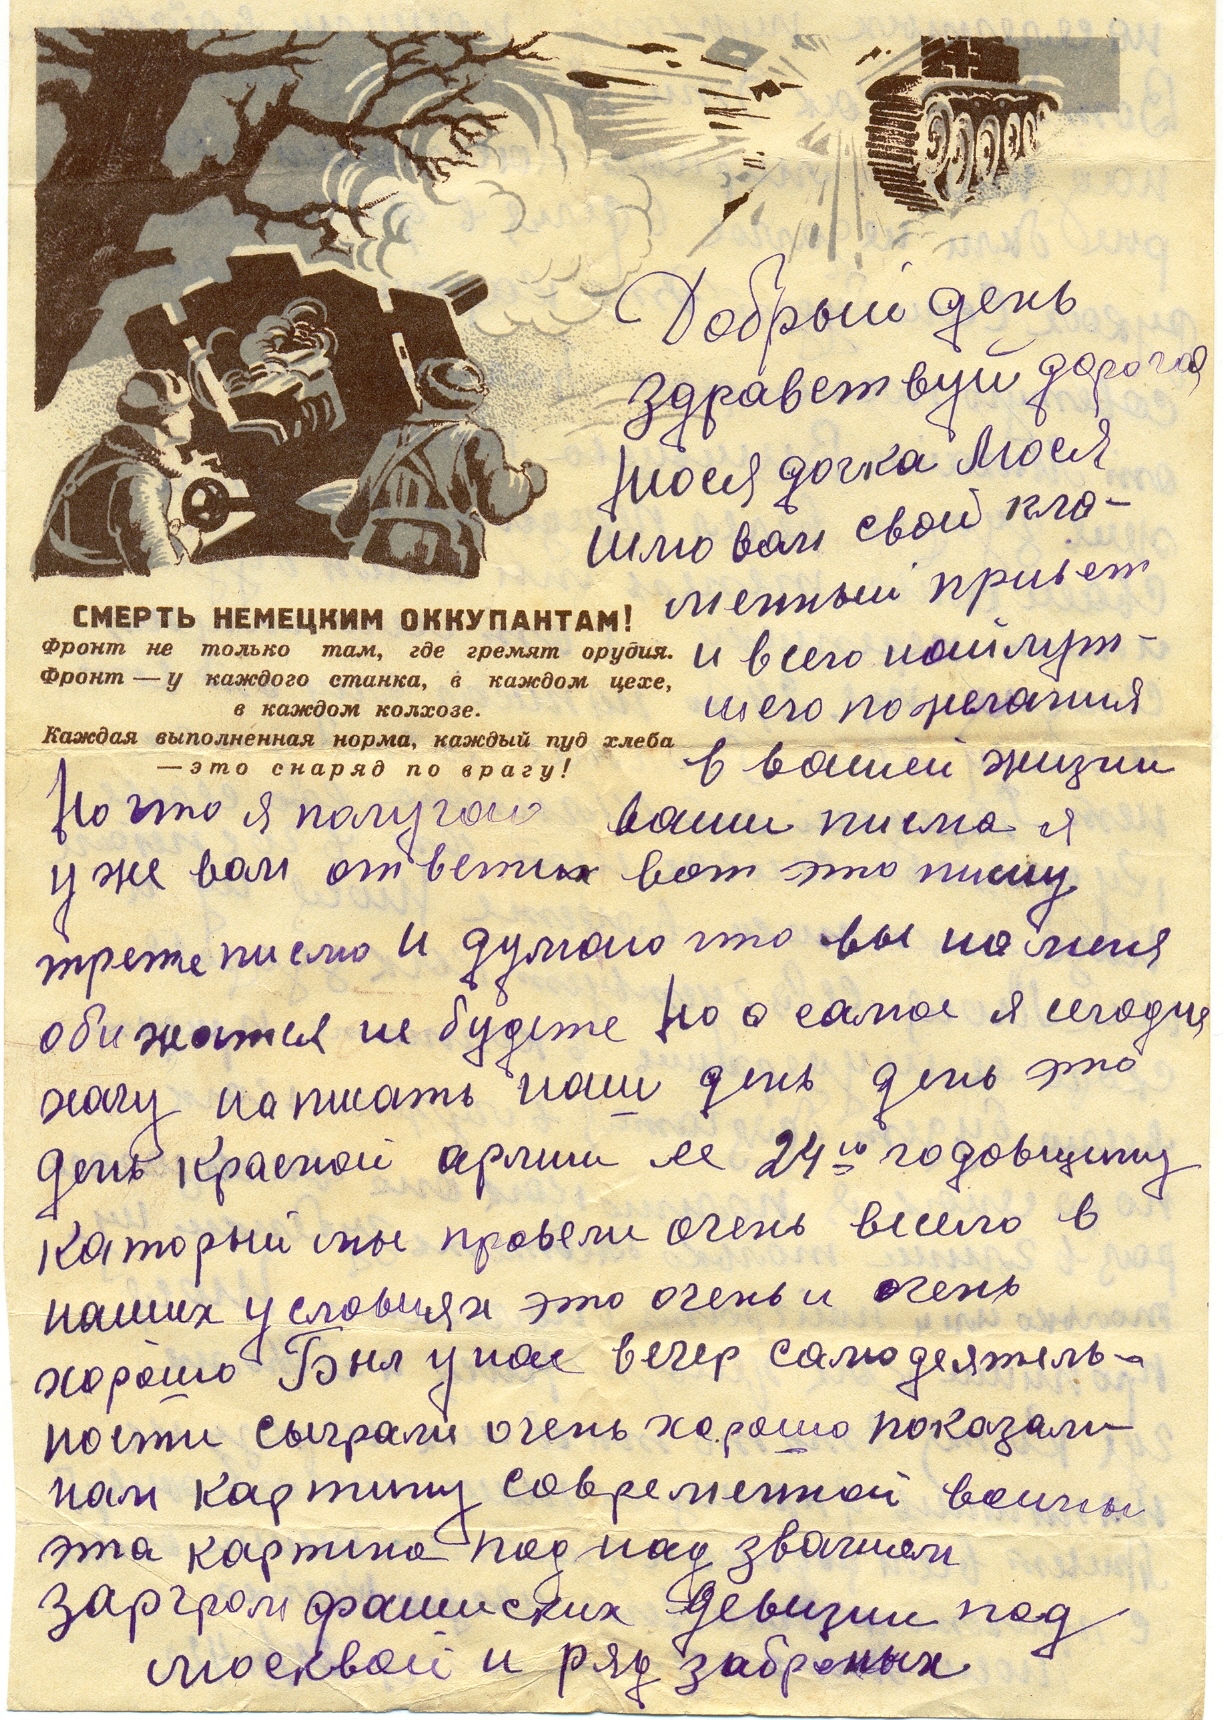 Добрый день
здравствуй дорогая
Нюся дочка Люся
шлю вам свой пла-
менный привет
и всего найлут-
шего пожелания
в вашей жизни
СМЕРТЬ НЕМЕЦКИМ ОККУПАНТАМ!
Фронт не только там, где гремят орудия.
Фронт — у каждого станка, в каждом цехе,
в каждом колхозе.
Каждая выполненная норма, каждый пуд хлеба
— это снаряд по врагу!
Но что я получаю ваши писма я
уже вам ответил вот это пишу
треже писмо и думаю что вы на меня
обижатся не будете Но а самое я сегодня
хачу написать наш день день это
день красной армии ее 24ю годовщину
каторый мы провели очень весело в
наших условиях это очень и очень
хорошо Был у нас вечер самодеятель-
ности сыграли очень хорошо показали
нам картину современной воины
эта картина под над званием
заргром фашиских девизии под
москвой и ряд